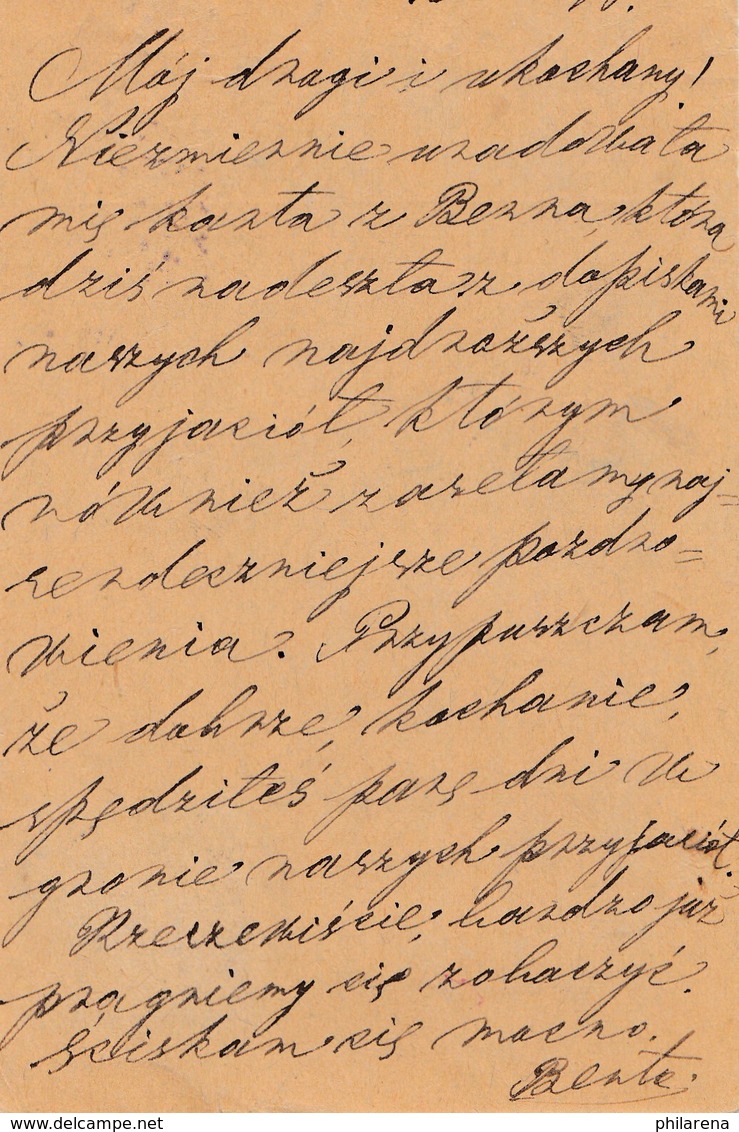 Mój drogi i ukochany!
Niezmiernie uradowała
mię karta z Berna, która
dziś nadeszła z dopiskami
naszych najdroższych
przyjaciół, którym
również zasełamy naj=
serdeczniejsze pozdro=
wienia. Przypuszczam,
że dobrze, kochanie,
spędziłeś parę dni w
gronie naszych przyjaciół.
Rzeczewiście, bardzo już
pragniemy cię zobaczyć.
Ściskam cię mocno.
delcampe.net
philarena